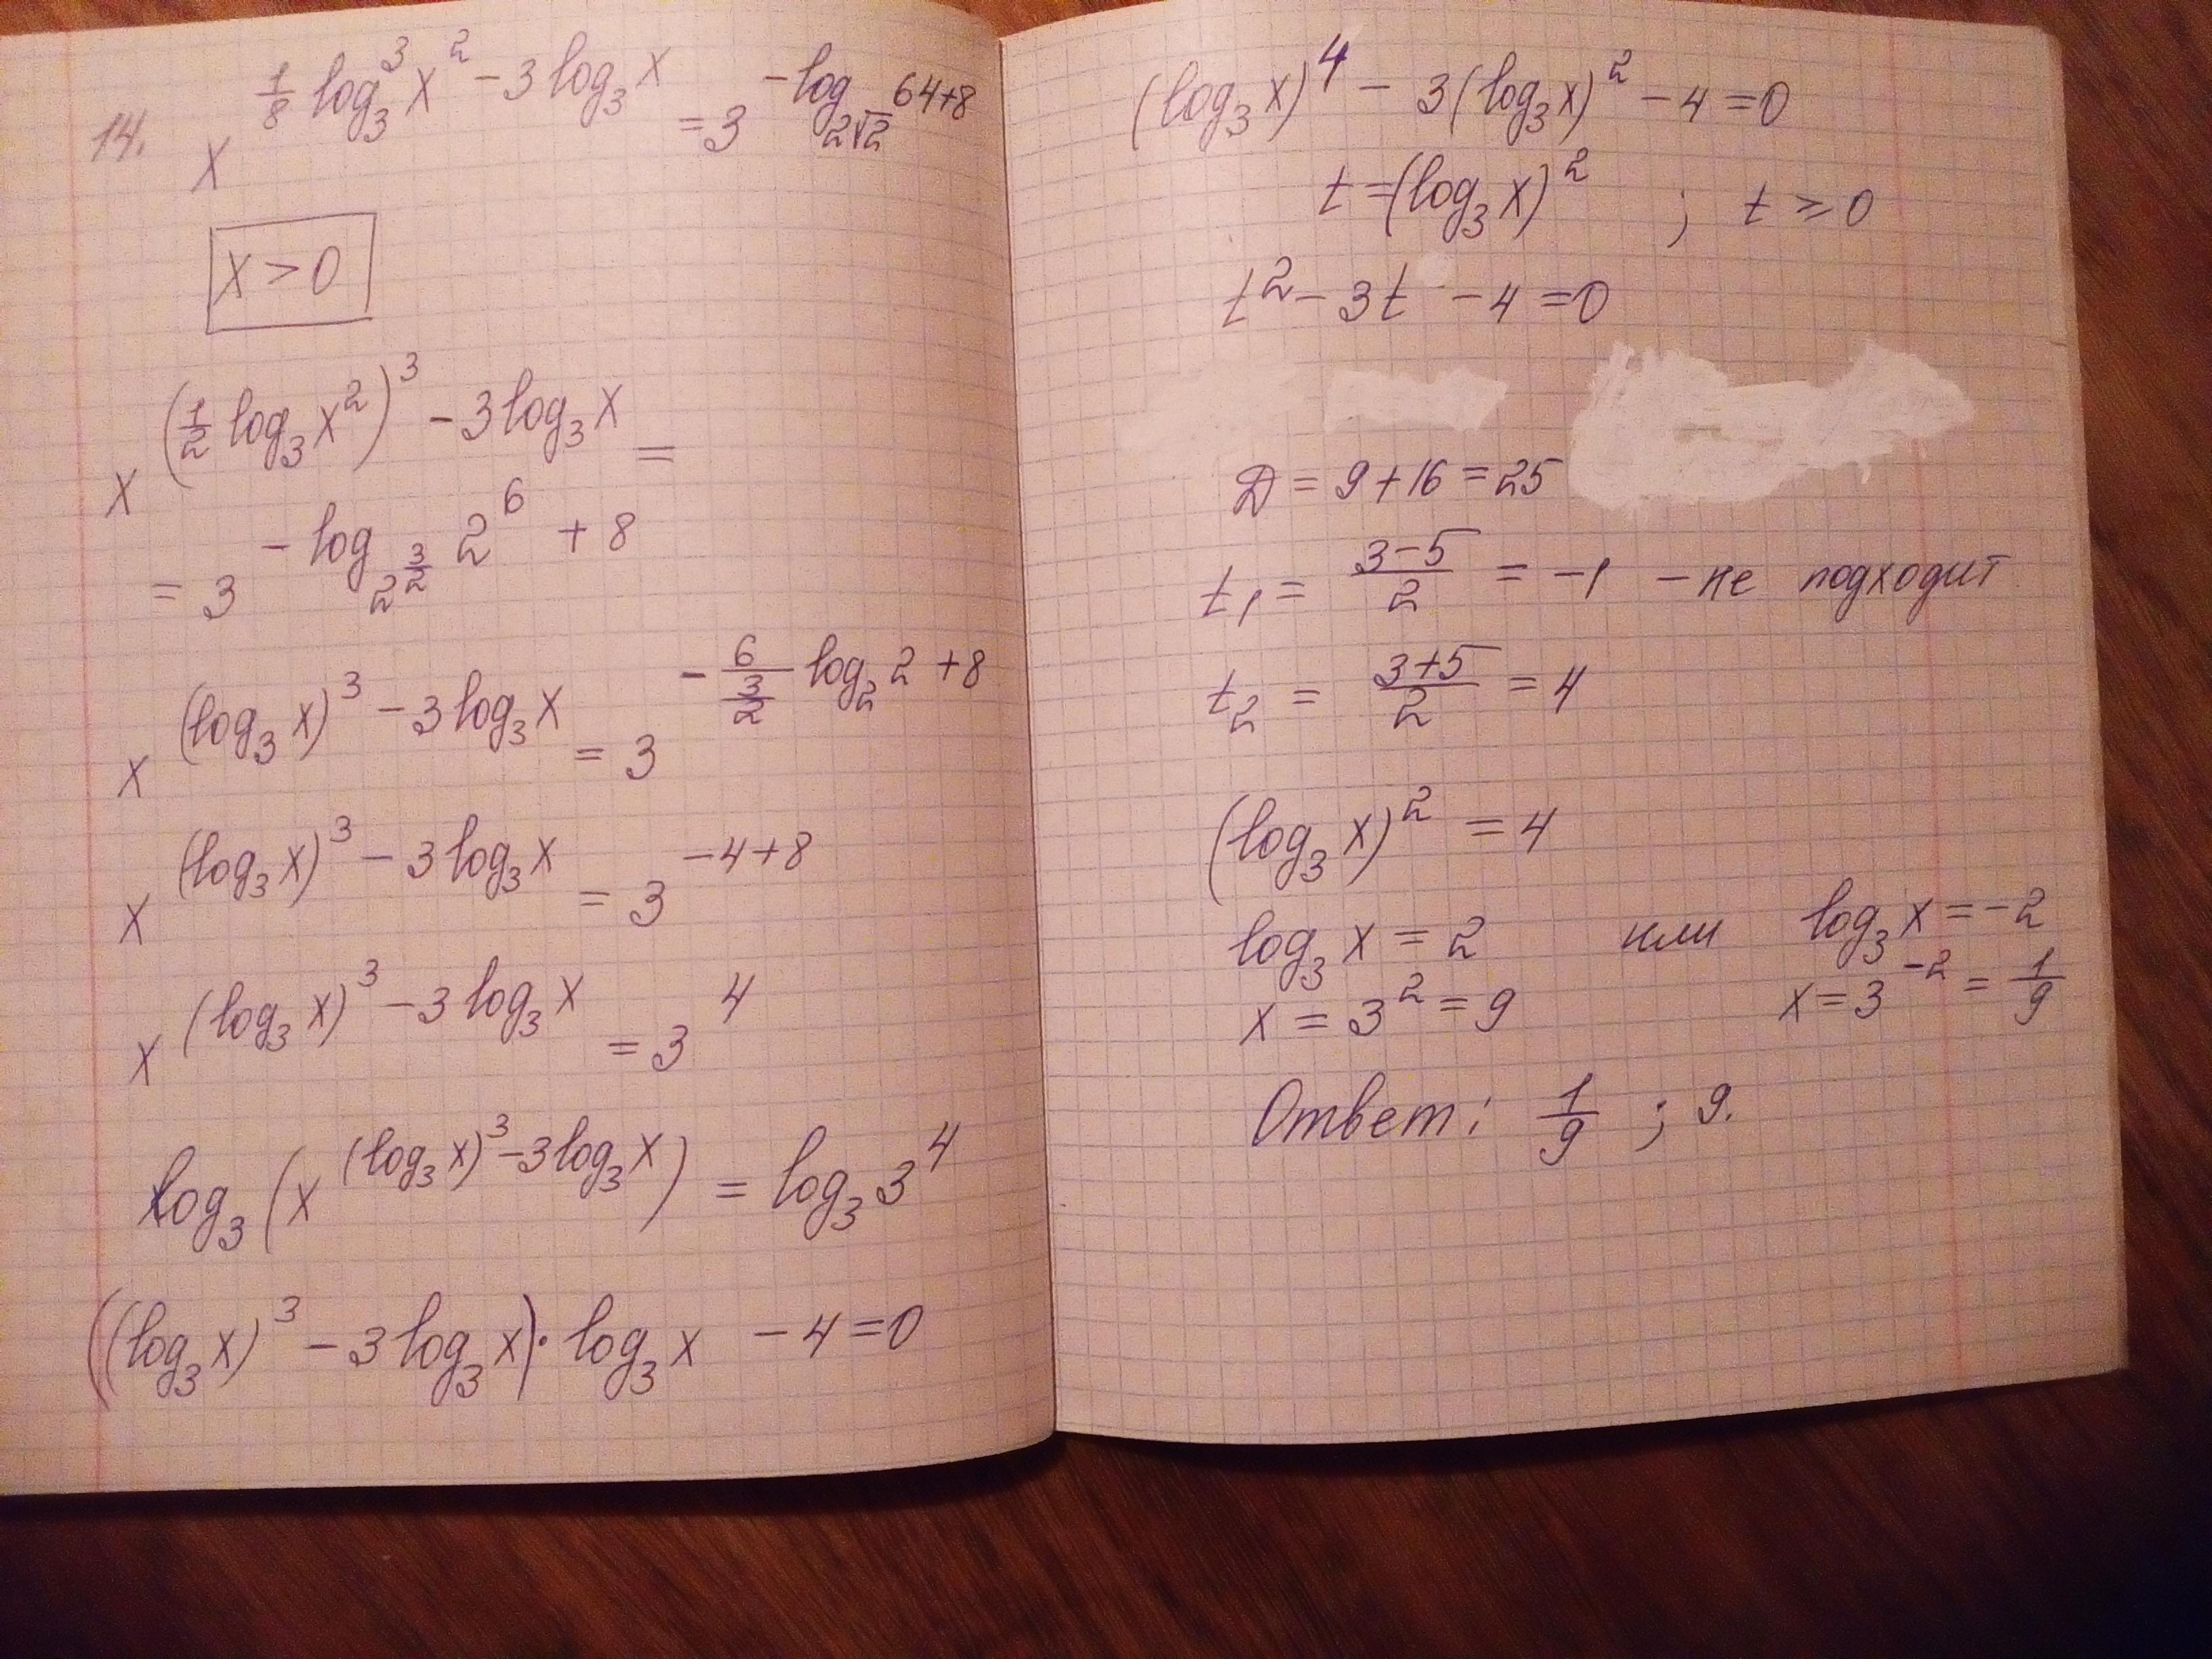 14. x^(1/8 log₃³ x² - 3 log₃ x) = 3^(-log_(2√2) 64 + 8)
x > 0
x^((1/2 log₃ x²)³ - 3 log₃ x) =
= 3^(-log_(2^(3/2)) 2⁶ + 8)
x^((log₃ x)³ - 3 log₃ x) = 3^(-6/(3/2) log₂ 2 + 8)
x^((log₃ x)³ - 3 log₃ x) = 3^(-4+8)
x^((log₃ x)³ - 3 log₃ x) = 3⁴
log₃ (x^((log₃ x)³ - 3 log₃ x)) = log₃ 3⁴
((log₃ x)³ - 3 log₃ x) · log₃ x - 4 = 0
(log₃ x)⁴ - 3(log₃ x)² - 4 = 0
t = (log₃ x)² ; t ⩾ 0
t² - 3t - 4 = 0
D = 9 + 16 = 25
t₁ = (3-5)/2 = -1 - не подходит
t₂ = (3+5)/2 = 4
(log₃ x)² = 4
log₃ x = 2 или log₃ x = -2
x = 3² = 9 x = 3⁻² = 1/9
Ответ: 1/9 ; 9.